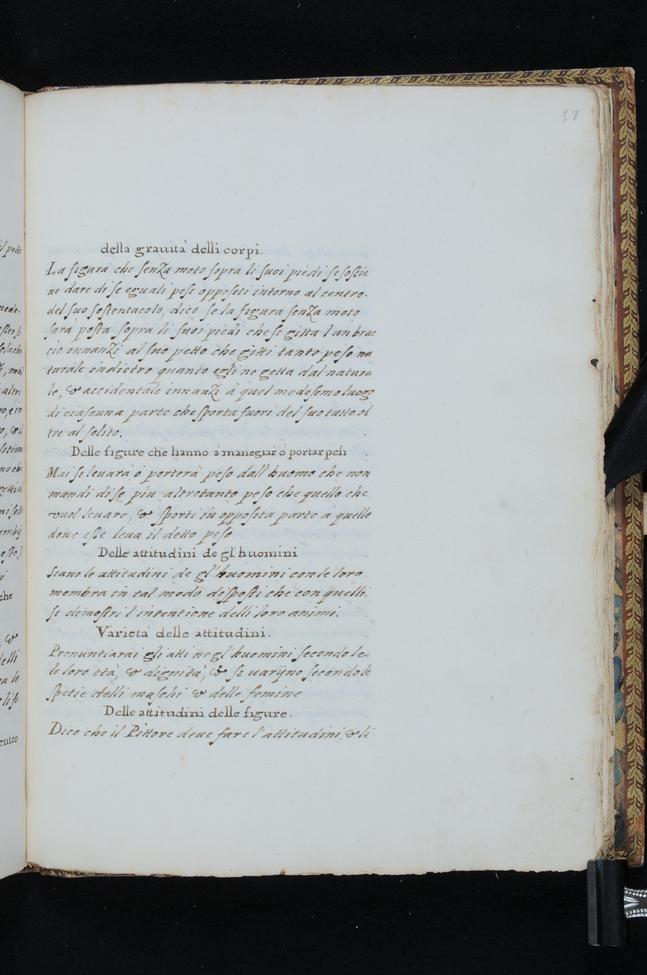 57
della grauità delli corpi.
La figura che senza moto sopra li suoi piedi se sostie
ne dare di se eguali pesi oppositi intorno al centro.
del suo sostentacolo, dico se la figura senza moto
sarà posta sopra li suoi piedi che se gitta l'un brac
cio innanzi al suo petto che gitti tanto peso na
turale indietro quanto egli ne getta dal natura
le, & accidentale innanzi à quel medesemo luogo
di ciascuna parte che sporta fuori del suo tutto ol
tre al solito.
Delle figure che hanno à manegiar ò portar pesi
Mai si levarà ò porterà peso dall' huomo che non
mandi di se più altrotanto peso che quello che
vuol levare, & sporti in opposita parte a quelle
doue esse leva il detto peso
Delle attitudini de gl' huomini
Siano le attitudini de gl' huomini con le loro
membra in tal modo disposti che con quelli
si dimostri l'intentione delli loro animi.
Varietà delle attitudini.
Pronuntiarai gli atti ne gl' huomini secondo le.
le loro età, & dignità, & se varijno secondo le
spetie delli maschi & delle femine
Delle attitudini delle figure.
Dico che il Pittore deue fare l'attitudini, & li